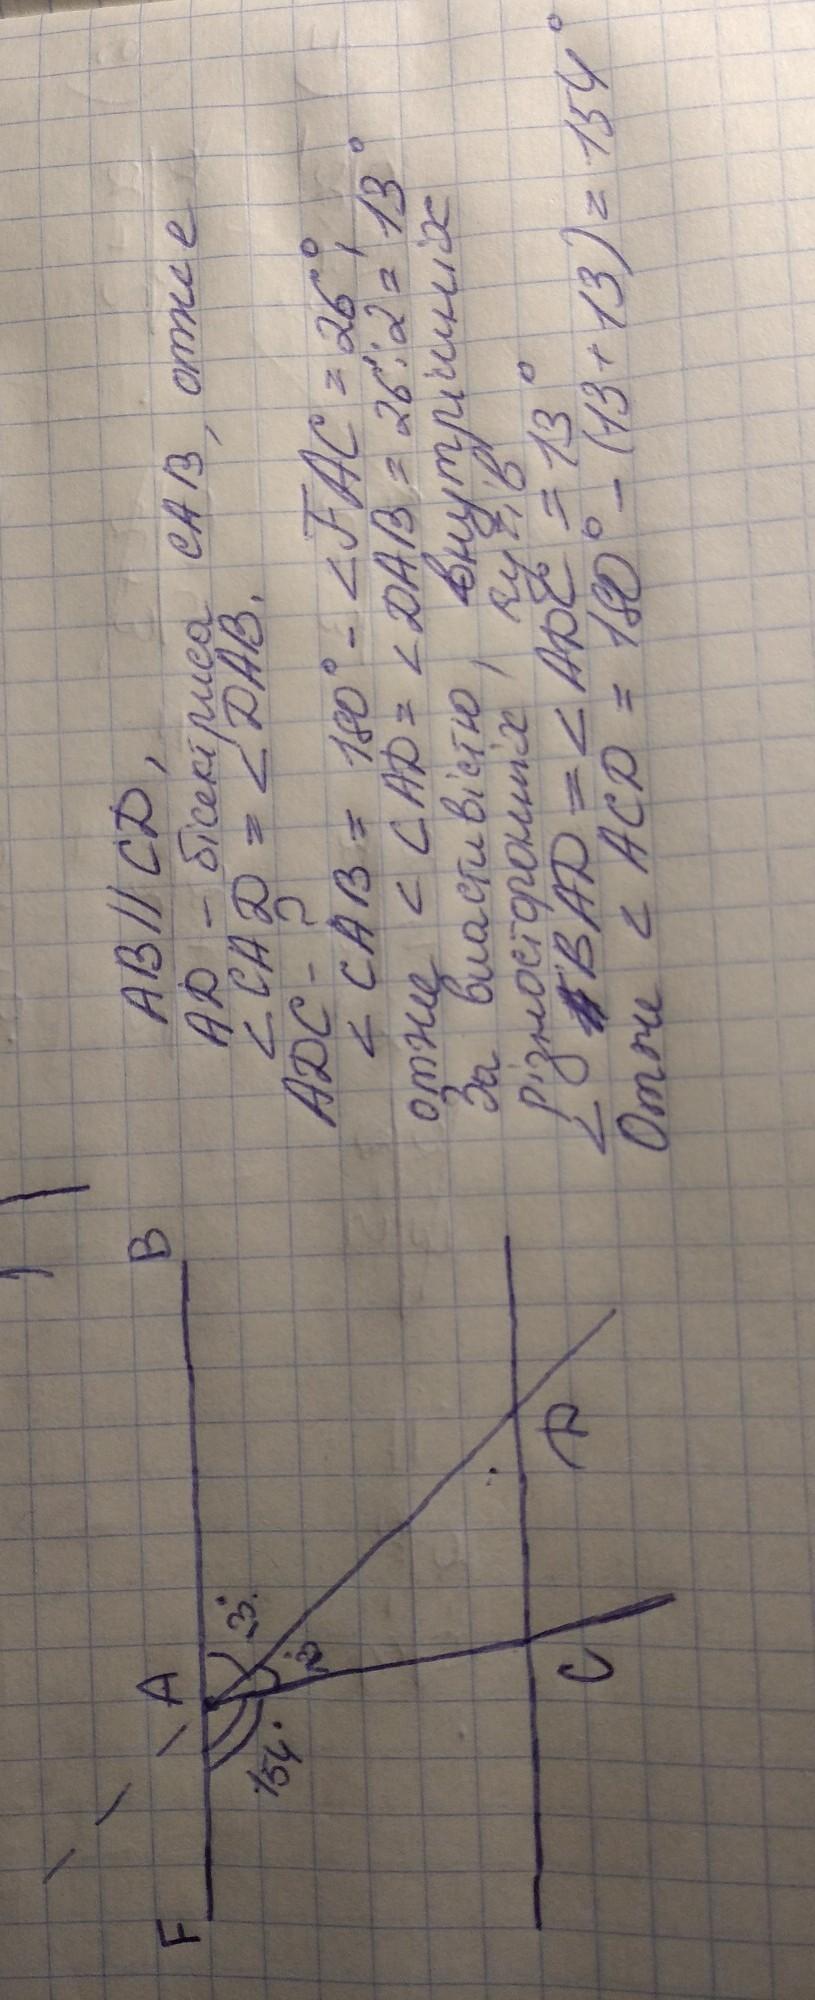 AB // CD,
AD - бісектриса CAB, отже
< CAD = < DAB.
ADC - ?
< CAB = 180° - < FAC = 26°,
отже < CAD = < DAB = 26:2 = 13°
За властивістю, внутрішніх
різносторонніх, кутів
< BAD = < ADC = 13°
Отже < ACD = 180° - (13+13) = 154°
F
A
B
154°
13°
C
D